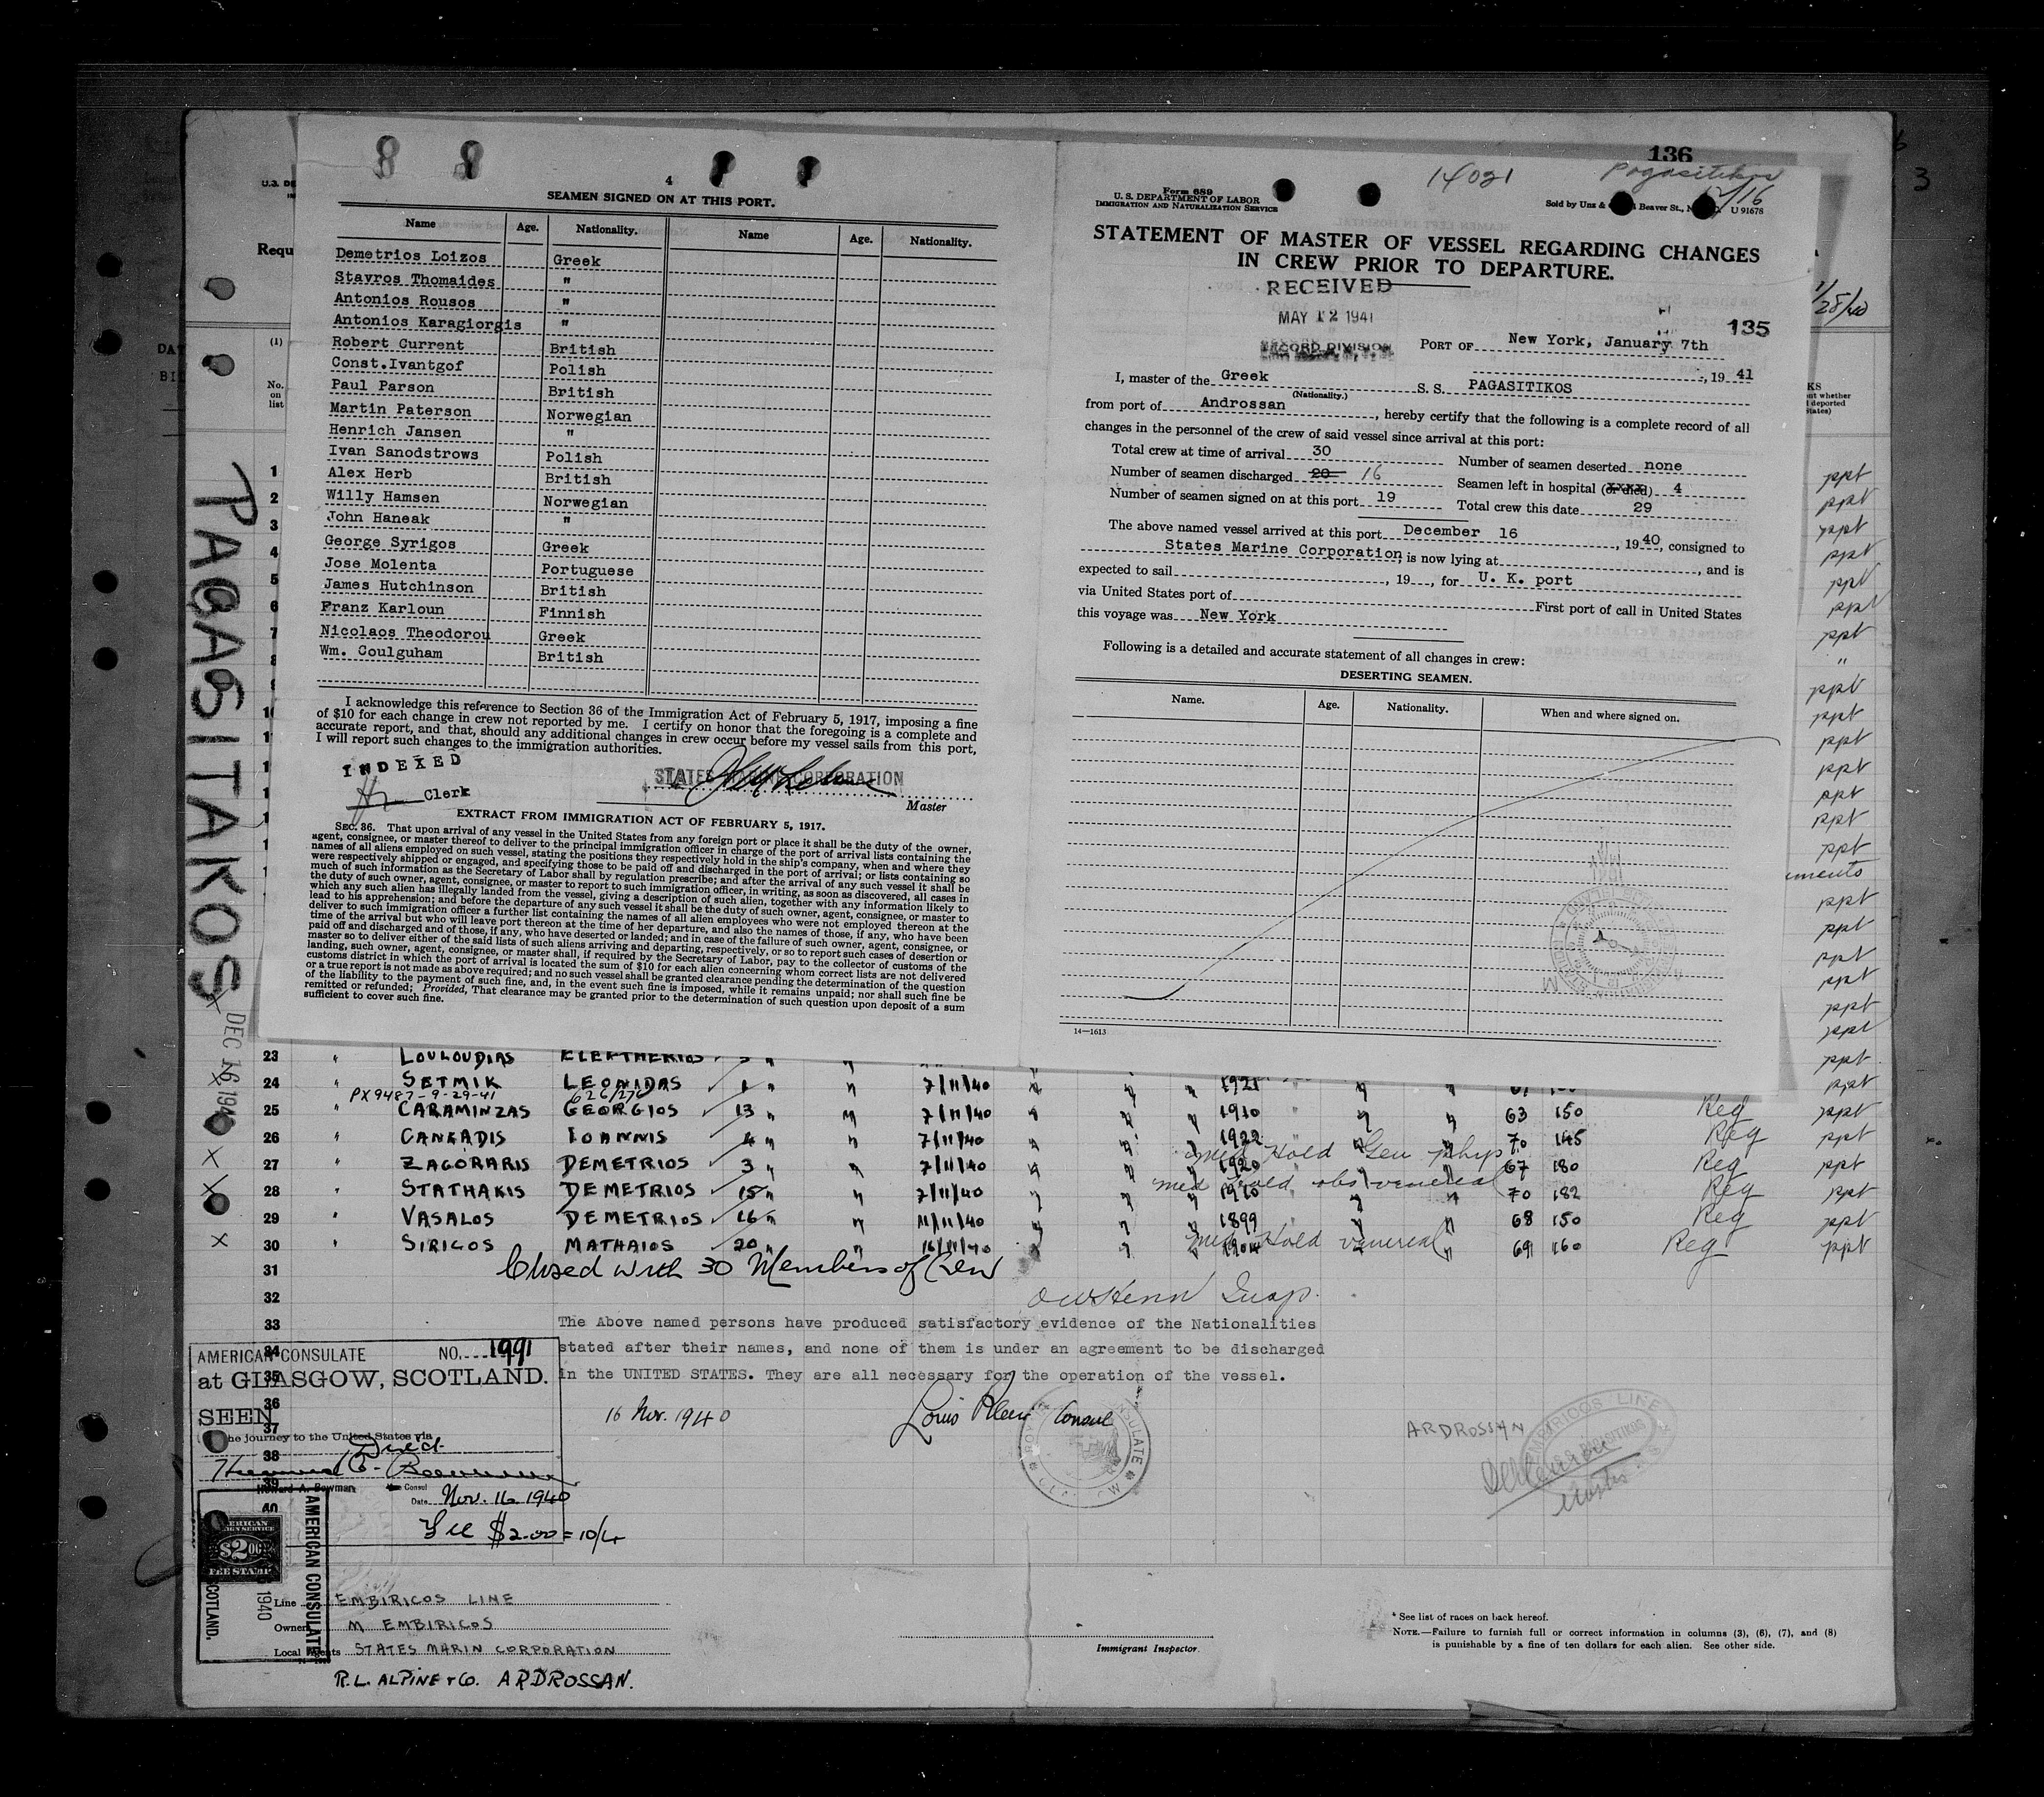 4
SEAMEN SIGNED ON AT THIS PORT.
Name Age. Nationality. Name Age. Nationality.
Demetrios Loizos Greek
Stavros Thomaides "
Antonios Rousos "
Antonios Karagiorgis "
Robert Current British
Const.Ivantgof Polish
Paul Parson British
Martin Paterson Norwegian
Henrich Jansen "
Ivan Sanodstrows Polish
Alex Herb British
Willy Hamsen Norwegian
John Haneak "
George Syrigos Greek
Jose Molenta Portuguese
James Hutchinson British
Franz Karloun Finnish
Nicolaos Theodorou Greek
Wm. Coulguham British
I acknowledge this reference to Section 36 of the Immigration Act of February 5, 1917, imposing a fine
of $10 for each change in crew not reported by me. I certify on honor that the foregoing is a complete and
accurate report, and that, should any additional changes in crew occur before my vessel sails from this port,
I will report such changes to the immigration authorities.
INDEXED
Clerk
STATES MARINE CORPORATION
Master
EXTRACT FROM IMMIGRATION ACT OF FEBRUARY 5, 1917.
SEC. 36. That upon arrival of any vessel in the United States from any foreign port or place it shall be the duty of the owner,
agent, consignee, or master thereof to deliver to the principal immigration officer in charge of the port of arrival lists containing the
names of all aliens employed on such vessel, stating the positions they respectively hold in the ship's company, when and where they
were respectively shipped or engaged, and specifying those to be paid off and discharged in the port of arrival; or lists containing so
much of such information as the Secretary of Labor shall by regulation prescribe; and after the arrival of any such vessel it shall be
the duty of such owner, agent, consignee, or master to report to such immigration officer, in writing, as soon as discovered, all cases in
which any such alien has illegally landed from the vessel, giving a description of such alien, together with any information likely to
lead to his apprehension; and before the departure of any such vessel it shall be the duty of such owner, agent, consignee, or master to
deliver to such immigration officer a further list containing the names of all alien employees who were not employed thereon at the
time of the arrival but who will leave port thereon at the time of her departure, and also the names of those, if any, who have been
paid off and discharged and of those, if any, who have deserted or landed; and in case of the failure of such owner, agent, consignee, or
master so to deliver either of the said lists of such aliens arriving and departing, respectively, or so to report such cases of desertion or
landing, such owner, agent, consignee, or master shall, if required by the Secretary of Labor, pay to the collector of customs of the
customs district in which the port of arrival is located the sum of $10 for each alien concerning whom correct lists are not delivered
or a true report is not made as above required; and no such vessel shall be granted clearance pending the determination of the question
of the liability to the payment of such fine, and, in the event such fine is imposed, while it remains unpaid; nor shall such fine be
remitted or refunded; Provided, That clearance may be granted prior to the determination of such question upon deposit of a sum
sufficient to cover such fine.
136
14021 Pagasitikos
5/16
Form 689
U. S. DEPARTMENT OF LABOR
IMMIGRATION AND NATURALIZATION SERVICE
Sold by Unz & Beaver St., U 91678
STATEMENT OF MASTER OF VESSEL REGARDING CHANGES
IN CREW PRIOR TO DEPARTURE.
RECEIVED
MAY 12 1941
RECORD DIVISION
135
PORT OF New York, January 7th, 19 41
I, master of the Greek S. S. PAGASITIKOS
(Nationality.)
from port of Androssan, hereby certify that the following is a complete record of all
changes in the personnel of the crew of said vessel since arrival at this port:
Total crew at time of arrival 30 Number of seamen deserted none
Number of seamen discharged 20 16 Seamen left in hospital (or died) 4
Number of seamen signed on at this port 19 Total crew this date 29
The above named vessel arrived at this port December 16, 1940, consigned to
States Marine Corporation, is now lying at , and is
expected to sail , 19 , for U. K. port
via United States port of First port of call in United States
this voyage was New York
Following is a detailed and accurate statement of all changes in crew:
DESERTING SEAMEN.
Name. Age. Nationality. When and where signed on.
14—1613
PAGASITAKOS
DEC 16 1940
Requ
(1)
No.
on
list
23 " LOULOUDIAS ELEFTHERIOS ppt
24 " SETMIK LEONIDAS 1 " " 7/11/40 " " " 1921 " " ppt
PX9487-9-29-41 626/276
25 " CARAMINZAS GEORGIOS 13 " " 7/11/40 " " " 1910 " " 63 150 Reg ppt
26 " CANKADIS IOANNIS 4 " " 7/11/40 " " " 1922 " " 70 145 Reg ppt
med Hold Gen Phys
27 " ZAGORARIS DEMETRIOS 3 " " 7/11/40 " " " 1920 " " 67 180 Reg ppt
med Hold obs venereal
28 " STATHAKIS DEMETRIOS 15 " " 7/11/40 " " " 1910 " " 70 182 Reg ppt
29 " VASALOS DEMETRIOS 16 " " 11/11/40 " " " 1899 " " 68 150 Reg ppt
med Hold venereal
30 " SIRIGOS MATHAIOS 20 " " 16/11/40 " " " 1904 " " 69 160 Reg ppt
31 Closed with 30 Members of Crew
32
33 The Above named persons have produced satisfactory evidence of the Nationalities
34 stated after their names, and none of them is under an agreement to be discharged
35 in the UNITED STATES. They are all necessary for the operation of the vessel.
36
37
38
39
40
AMERICAN CONSULATE NO. 1991
at GLASGOW, SCOTLAND.
SEEN
the journey to the United States via
Direct
Howard A. Bowman Consul
Date Nov. 16. 1940
Fee $2.00 = 10/4
16 Nov. 1940
Consul
ARDROSSAN
EMBIRICOS LINE
Master
AMERICAN CONSULATE
$2.00
FEE STAMP
SCOTLAND.
1940
Line EMBIRICOS LINE
Owners M EMBIRICOS
Local Agents STATES MARIN CORPORATION
R.L. ALPINE & Co. ARDROSSAN.
Immigrant Inspector.
* See list of races on back hereof.
NOTE.—Failure to furnish full or correct information in columns (3), (6), (7), and (8)
is punishable by a fine of ten dollars for each alien. See other side.